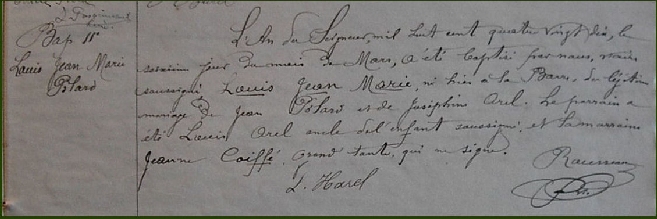 Bap 11e
Louis Jean Marie
Pôlard
L'An du Seigneur, mil huit cent quatre vingt dix, le
jour du mois de Mars, a été baptisé par nous, vicaire
soussigné Louis Jean Marie, né hier à la Barre, du légitime
mariage de Jean Pôlard et de Joséphine Orel. Le parrain a
été Louis Orel oncle de l'enfant soussigné, et la marraine
Jeanne Coiffé, grand'tante, qui ne signe.
L. Harel